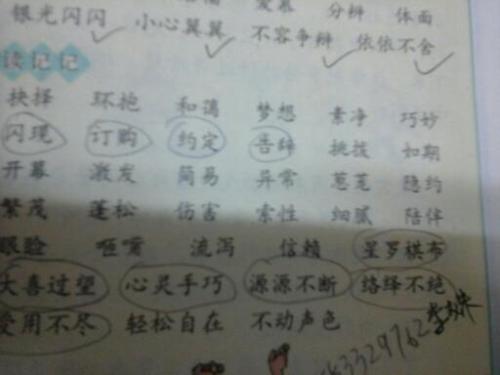 爱慕 分辨 体面
银光闪闪 小心翼翼 不容争辩 依依不舍
读记记
抉择 环抱 和蔼 梦想 素净 巧妙
闪现 订购 约定 告辞 挑拨 如期
开幕 激发 简易 异常 葱茏 隐约
繁茂 蓬松 伤害 索性 细腻 陪伴
眼睑 咂嘴 流泻 信赖 星罗棋布
大喜过望 心灵手巧 源源不断 络绎不绝
受用不尽 轻松自在 不动声色